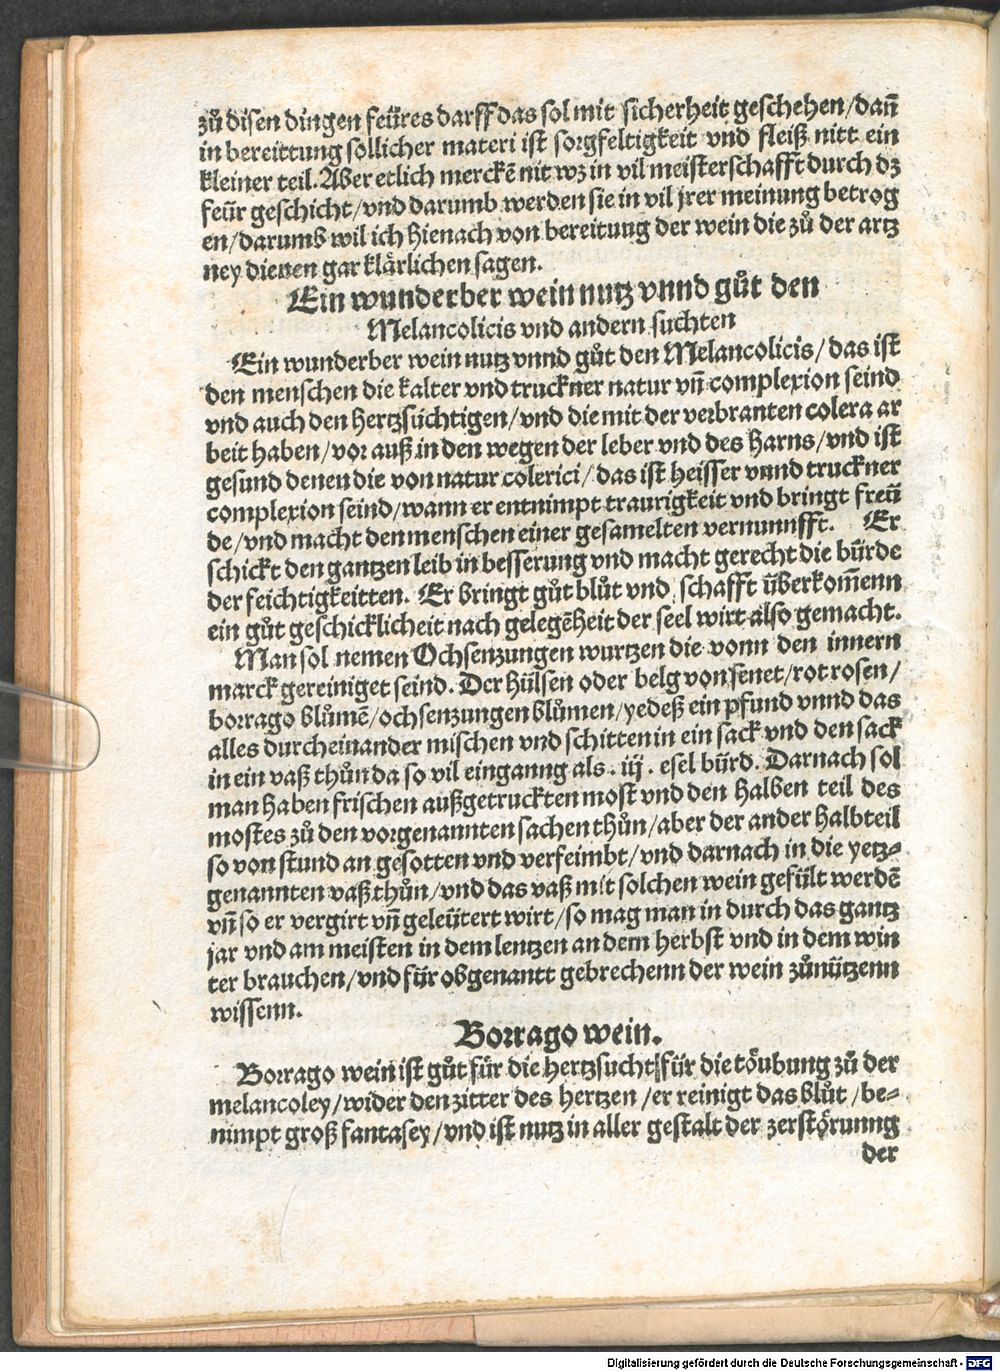 zů disen dingen feüres darff das sol mit sicherheit geschehen/dañ
in bereittung sollicher materi ist sorgfeltigkeit vnd fleiß nitt ein
kleiner teil. Aber etlich merckē nit wz in vil meisterschafft durch dz
feür geschicht/vnd darumb werden sie in vil jrer meinung betrog
en/darumb wil ich hienach von bereitung der wein die zů der artz
ney dienen gar klärlichen sagen.
Ein wunderber wein nutz vnnd gůt den
Melancolicis vnd andern suchten
Ein wunderber wein nutz vnnd gůt den Melancolicis/das ist
den menschen die kalter vnd truckner natur vñ complexion seind
vnd auch den hertzsüchtigen/vnd die mit der verbranten colera ar
beit haben/vor auß in den wegen der leber vnd des harns/vnd ist
gesund denen die von natur colerici/das ist heisser vnnd truckner
complexion seind/wann er entnimpt traurigkeit vnd bringt freü
de/vnd macht den menschen einer gesamelten vernunnfft. Er
schickt den gantzen leib in besserung vnd macht gerecht die bürde
der feichtigkeitten. Er bringt gůt blůt vnd schafft überkom̃enn
ein gůt geschicklicheit nach gelegēheit der seel wirt also gemacht.
Man sol nemen Ochsenzungen wurtzen die vonn den innern
marck gereiniget seind. Der hülsen oder belg von senet/rot rosen/
borrago blůmē/ochsenzungen blůmen/yedeß ein pfund vnnd das
alles durcheinander mischen vnd schitten in ein sack vnd den sack
in ein vaß thůn da so vil einganng als .iij. esel bürd. Darnach sol
man haben frischen außgetruckten most vnd den halben teil des
mostes zů den vorgenannten sachen thůn/aber der ander halbteil
so von stund an gesotten vnd verfeimbt/vnd darnach in die yetz⸗
genannten vaß thůn/vnd das vaß mit solchen wein gefült werdē
vñ so er vergirt vñ geleütert wirt/so mag man in durch das gantz
jar vnd am meisten in dem lentzen an dem herbst vnd in dem win
ter brauchen/vnd für obgenantt gebrechenn der wein zůnützenn
wissenn.
Borrago wein.
Borrago wein ist gůt für die hertzsucht/für die töubung zů der
melancoley/wider den zitter des hertzen/er reinigt das blůt/be⸗
nimpt groß fantasey/vnd ist nutz in aller gestalt der zerstörunng
der
Digitalisierung gefördert durch die Deutsche Forschungsgemeinschaft - DFG